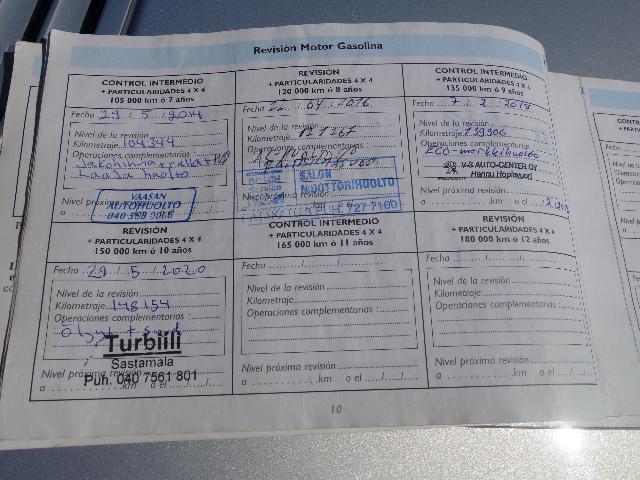 Revisión Motor Gasolina
CONTROL INTERMEDIO
+ PARTICULARIDADES 4 X 4
105 000 km ó 7 años
Fecha 29 / 5 / 2014
Nivel de la revisión
Kilometraje 104344
Operaciones complementarias
Laaja huolto
Nivel próxima
VAASAN
AUTOHUOLTO
REVISIÓN
+ PARTICULARIDADES 4 X 4
120 000 km ó 8 años
Fecha / 04 / 2016
Nivel de la revisión
Kilometraje
Operaciones complementarias
SALON
MOOTTORIHUOLTO
727 7100
CONTROL INTERMEDIO
+ PARTICULARIDADES 4 X 4
135 000 km ó 9 años
Fecha 7 / 2 / 2018
Nivel de la revisión
Kilometraje 139306
Operaciones complementarias
V-S AUTO-CENTER OY
Hannu
Nivel próxima revisión
a km o el
REVISIÓN
+ PARTICULARIDADES 4 X 4
150 000 km ó 10 años
Fecha 29 / 5 / 2020
Nivel de la revisión
Kilometraje 148154
Operaciones complementarias :
Turbiili
Sastamala
Nivel próxima revisión :
Puh. 040 7561 801
a km o el
CONTROL INTERMEDIO
+ PARTICULARIDADES 4 X 4
165 000 km ó 11 años
Fecha
Nivel de la revisión
Kilometraje
Operaciones complementarias :
Nivel próxima revisión :
a km o el
REVISIÓN
+ PARTICULARIDADES 4 X 4
180 000 km ó 12 años
Fecha
Nivel de la revisión
Kilometraje
Operaciones complementarias :
Nivel próxima revisión :
a km o el
10